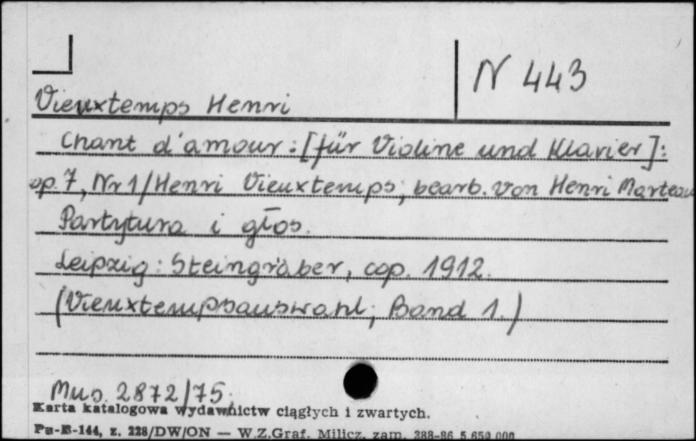 N 443
Vieuxtemps Henri
Chant d'amour : [für Violine und Klavier] :
op. 7, Nr 1 / Henri Vieuxtemps ; bearb. von Henri Marteau
Partytura i głos.
Leipzig : Steingräber, cop. 1912.
(Vieuxtempsauswahl ; Band 1.)
Mus. 2872/75.
Karta katalogowa wydawnictw ciągłych i zwartych.
Pu-B-144, z. 228/DW/ON — W.Z.Graf. Milicz, zam. 288-86 5 650 000